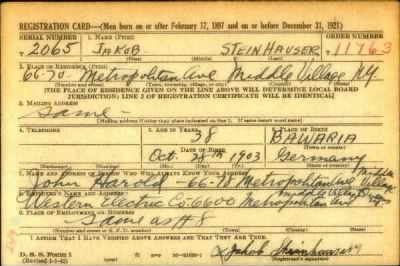 REGISTRATION CARD—(Men born on or after February 17, 1897 and on or before December 31, 1921)
SERIAL NUMBER 1. NAME (Print) ORDER NUMBER
2065 JAKOB STEINHAUSER 11763
(First) (Middle) (Last)
2. PLACE OF RESIDENCE (Print)
66-70 Metropolitan Ave Middle Village N.Y.
(Number and street) (Town, township, village, or city) (County) (State)
[THE PLACE OF RESIDENCE GIVEN ON THE LINE ABOVE WILL DETERMINE LOCAL BOARD
JURISDICTION; LINE 2 OF REGISTRATION CERTIFICATE WILL BE IDENTICAL]
3. MAILING ADDRESS
Same
[Mailing address if other than place indicated on line 2. If same insert word same]
4. TELEPHONE 5. AGE IN YEARS 6. PLACE OF BIRTH
38 BAWARIA
DATE OF BIRTH (Town or county)
Oct. 28th 1903 Germany
(Exchange) (Number) (Mo.) (Day) (Yr.) (State or country)
7. NAME AND ADDRESS OF PERSON WHO WILL ALWAYS KNOW YOUR ADDRESS Middle
John Harold - 66-78 Metropolitan Ave Village
8. EMPLOYER'S NAME AND ADDRESS Middle Village
Western Electric Co. 6600 Metropolitan Ave
9. PLACE OF EMPLOYMENT OR BUSINESS
Same as #8
(Number and street or R. F. D. number) (Town) (County) (State)
I AFFIRM THAT I HAVE VERIFIED ABOVE ANSWERS AND THAT THEY ARE TRUE.
D. S. S. Form 1
(Revised 1-5-42) (over) 16—21630-1
Jakob Steinhauser
(Registrant's signature)